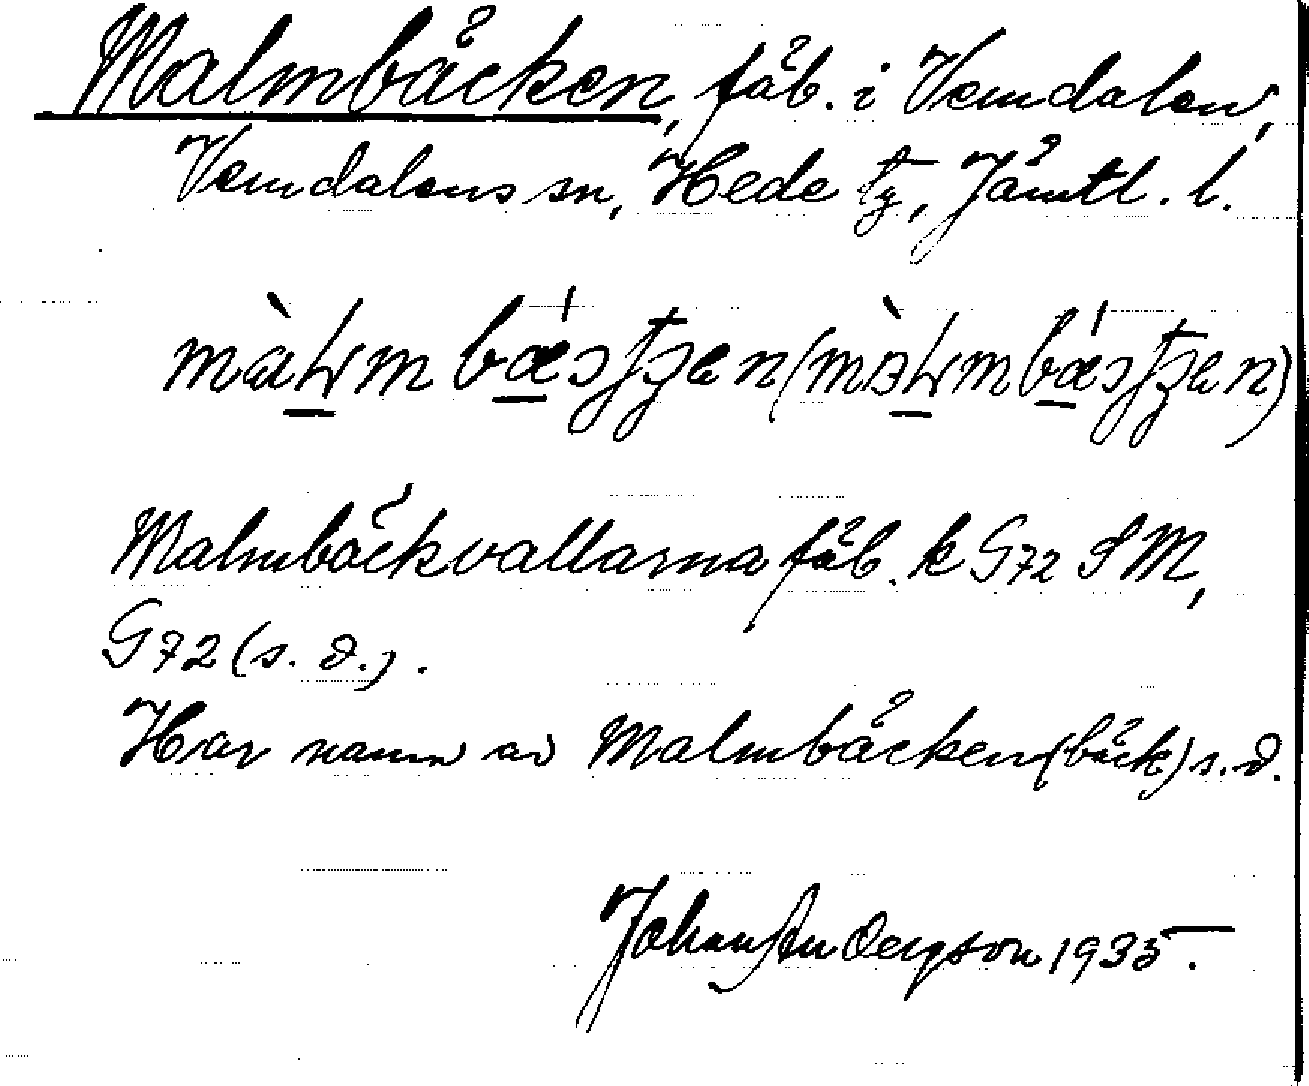 Malmbäcken, fäb. i Vemdalen,
Vemdalens sn, Hede tg, Jämtl. l.
Malmbäckvallarna fäb. k G72 SM,
G72 (s. d.).
Har namn av Malmbäcken (bäck) s. d.
Johan Anderson 1935.